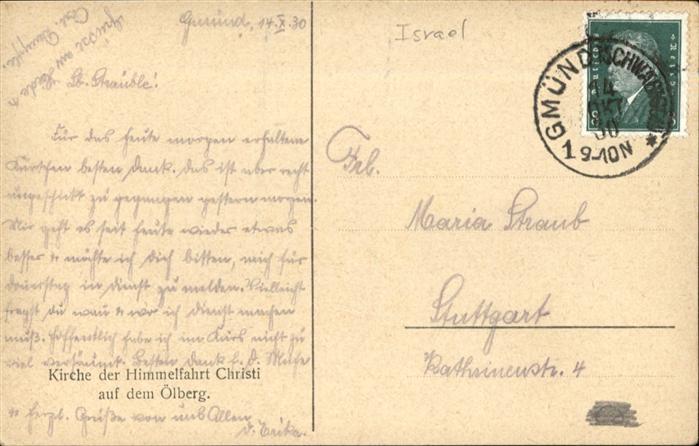 Gmünd, 14.X.30
Israel
Lb. Sträuble!
Für das heute morgen erhaltene
Kärtchen besten Dank. Das ist aber recht
ungeschickt zu gegangen gestern morgen.
Mir geht es seit heute wieder etwas
besser & möchte ich dich bitten, mich für
Donerstag in Dienst zu melden. Vielleicht
fragst du wau & wo ich Dienst machen
muß. Hoffentlich habe ich im Kurs nicht zu
viel versäumt. Besten Dank f. d. Mühe
Kirche der Himmelfahrt Christi
auf dem Ölberg.
& herzl. Grüße von uns Allen
d. Erika.
GMÜND (SCHWÄB.)
14
OKT
30
9-10 N
1
Deutsches Reich
8
Frl.
Maria Straub
Stuttgart
Kathrinenstr. 4